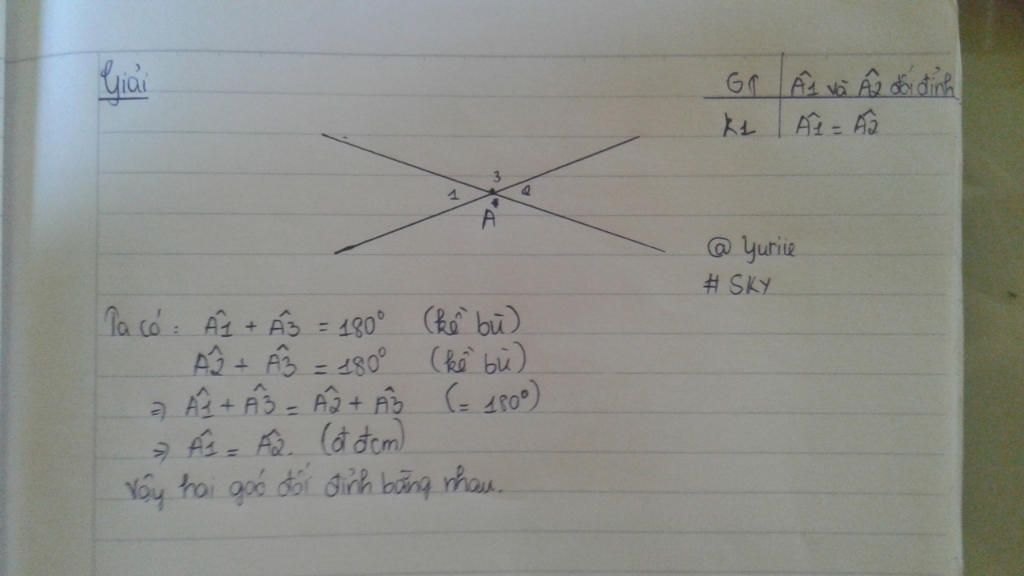 Giải
GT | Â1 và Â2 đối đỉnh
KL | Â1 = Â2
3
1 2
4
A
@ Yuriie
# SKY
Ta có : Â1 + Â3 = 180° (kề bù)
Â2 + Â3 = 180° (kề bù)
⇒ Â1 + Â3 = Â2 + Â3 (= 180°)
⇒ Â1 = Â2. (đ đcm)
Vậy hai goó đối đỉnh bằng nhau.